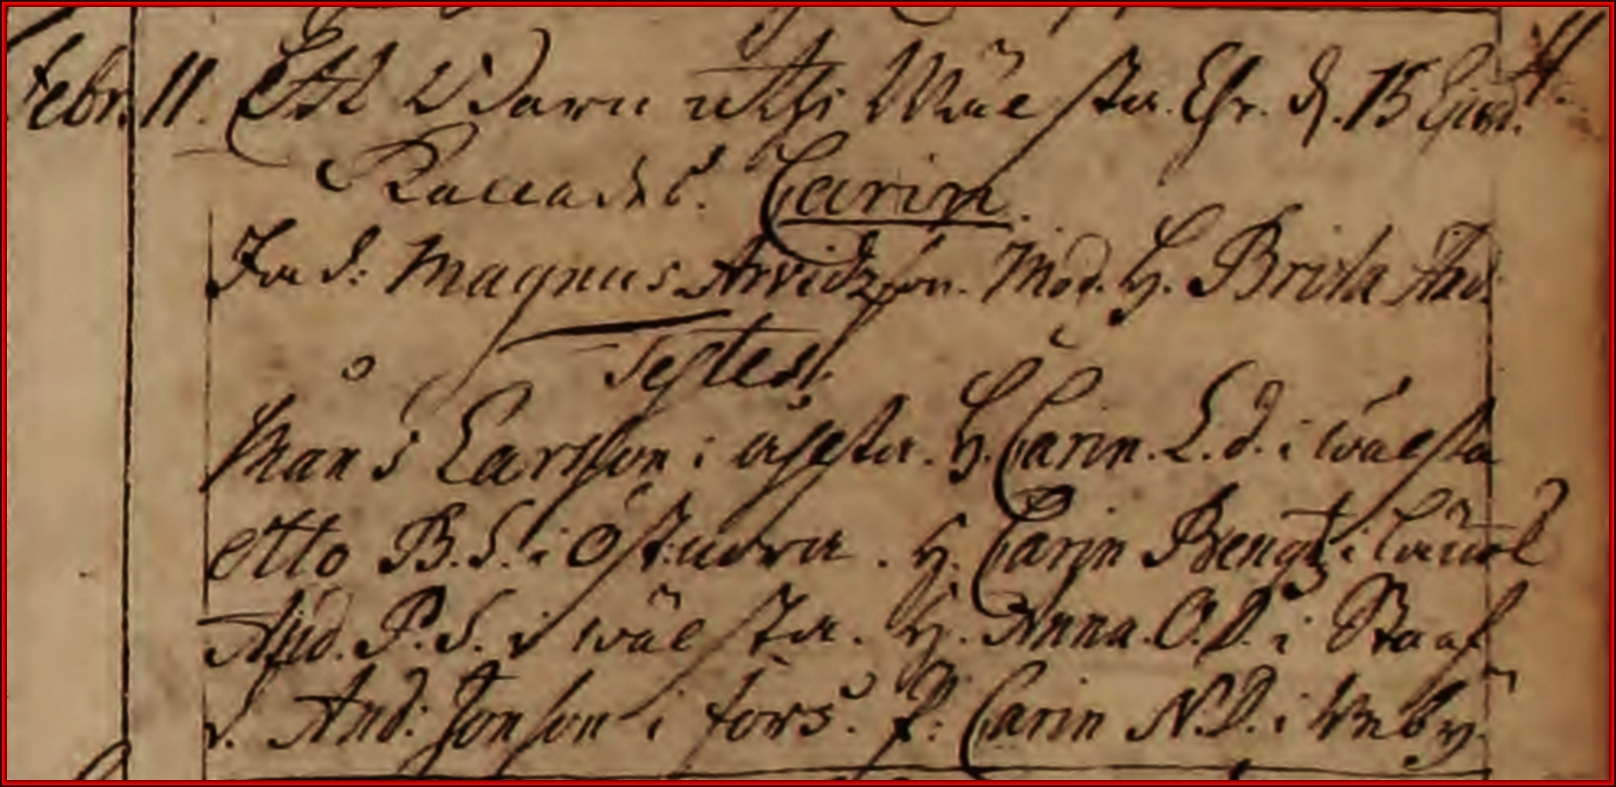 Febr. 11. Ett Barn uthi Wäesta. Chr. d. 15 Ejusd.
Kallades. Carin.
Fad: Magnus Arvidzson. Mod. H. Brita And:
Testes.
Måns Larsson i åhesta. H. Carin. L. d. i wäesta
Otto B. S. i Öst
H. Carin Bengtz i
And. P. S. i wäesta. H. Anna. O. D. i Staaf
d. And: Jonson i fors. P: Carin N. D. i Wneby.